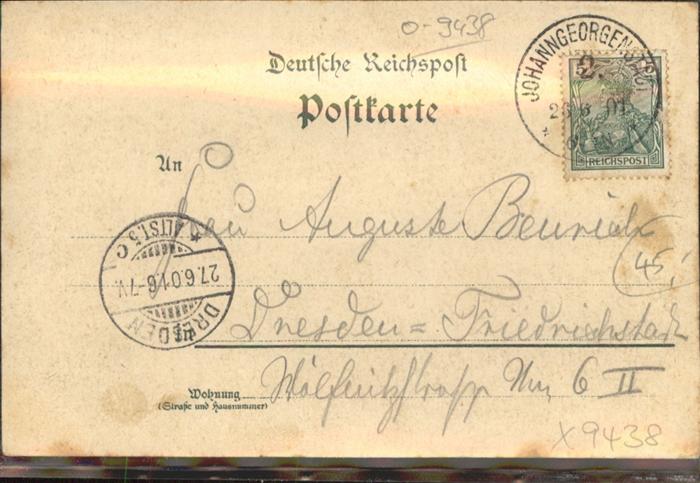 0-9438
JOHANNGEORGENSTADT
26 6 01
5
REICHSPOST
Deutsche Reichspost
Postkarte
An
Frau Auguste Benrich
45
ALTST. 5 C
27.6.01.6-7V.
DRESDEN
in Dresden=Friedrichstadt
Wohnung
(Straße und Hausnummer)
Wölfnitzstrasse 6 II
X9438